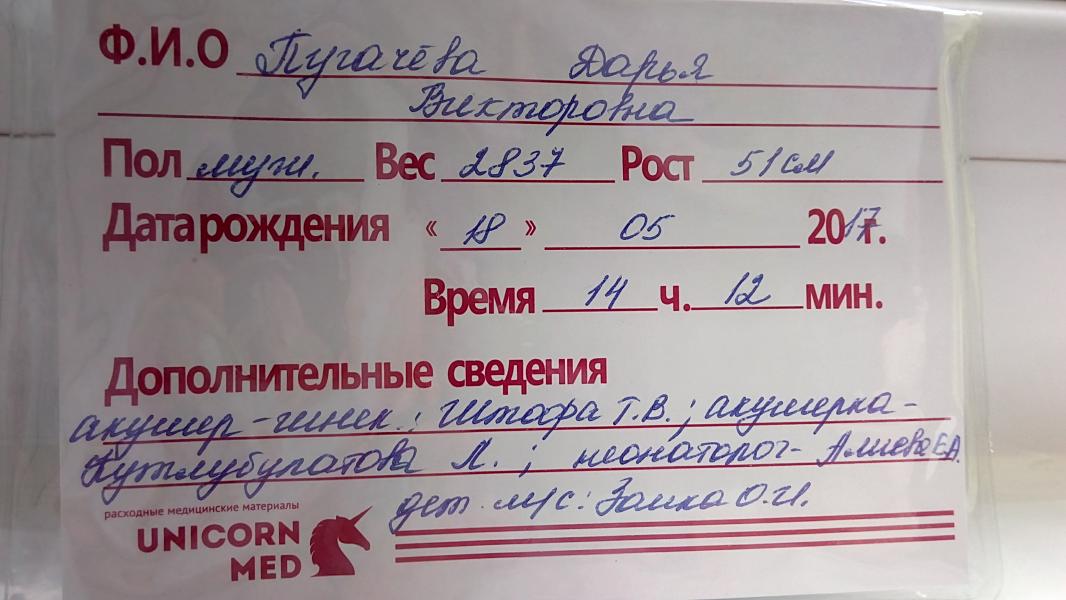 Ф.И.О Пугачёва Дарья
Викторовна
Пол муж. Вес 2837 Рост 51 см
Дата рождения « 18 » 05 2017г.
Время 14 ч. 12 мин.
Дополнительные сведения
акушер-гинек.: Штафа Т.В.; акушерка-
Кутлубулатова Л.; неонатолог- Алиева Е.А.
дет. м/с: Заика О.И.
расходные медицинские материалы
UNICORN
MED